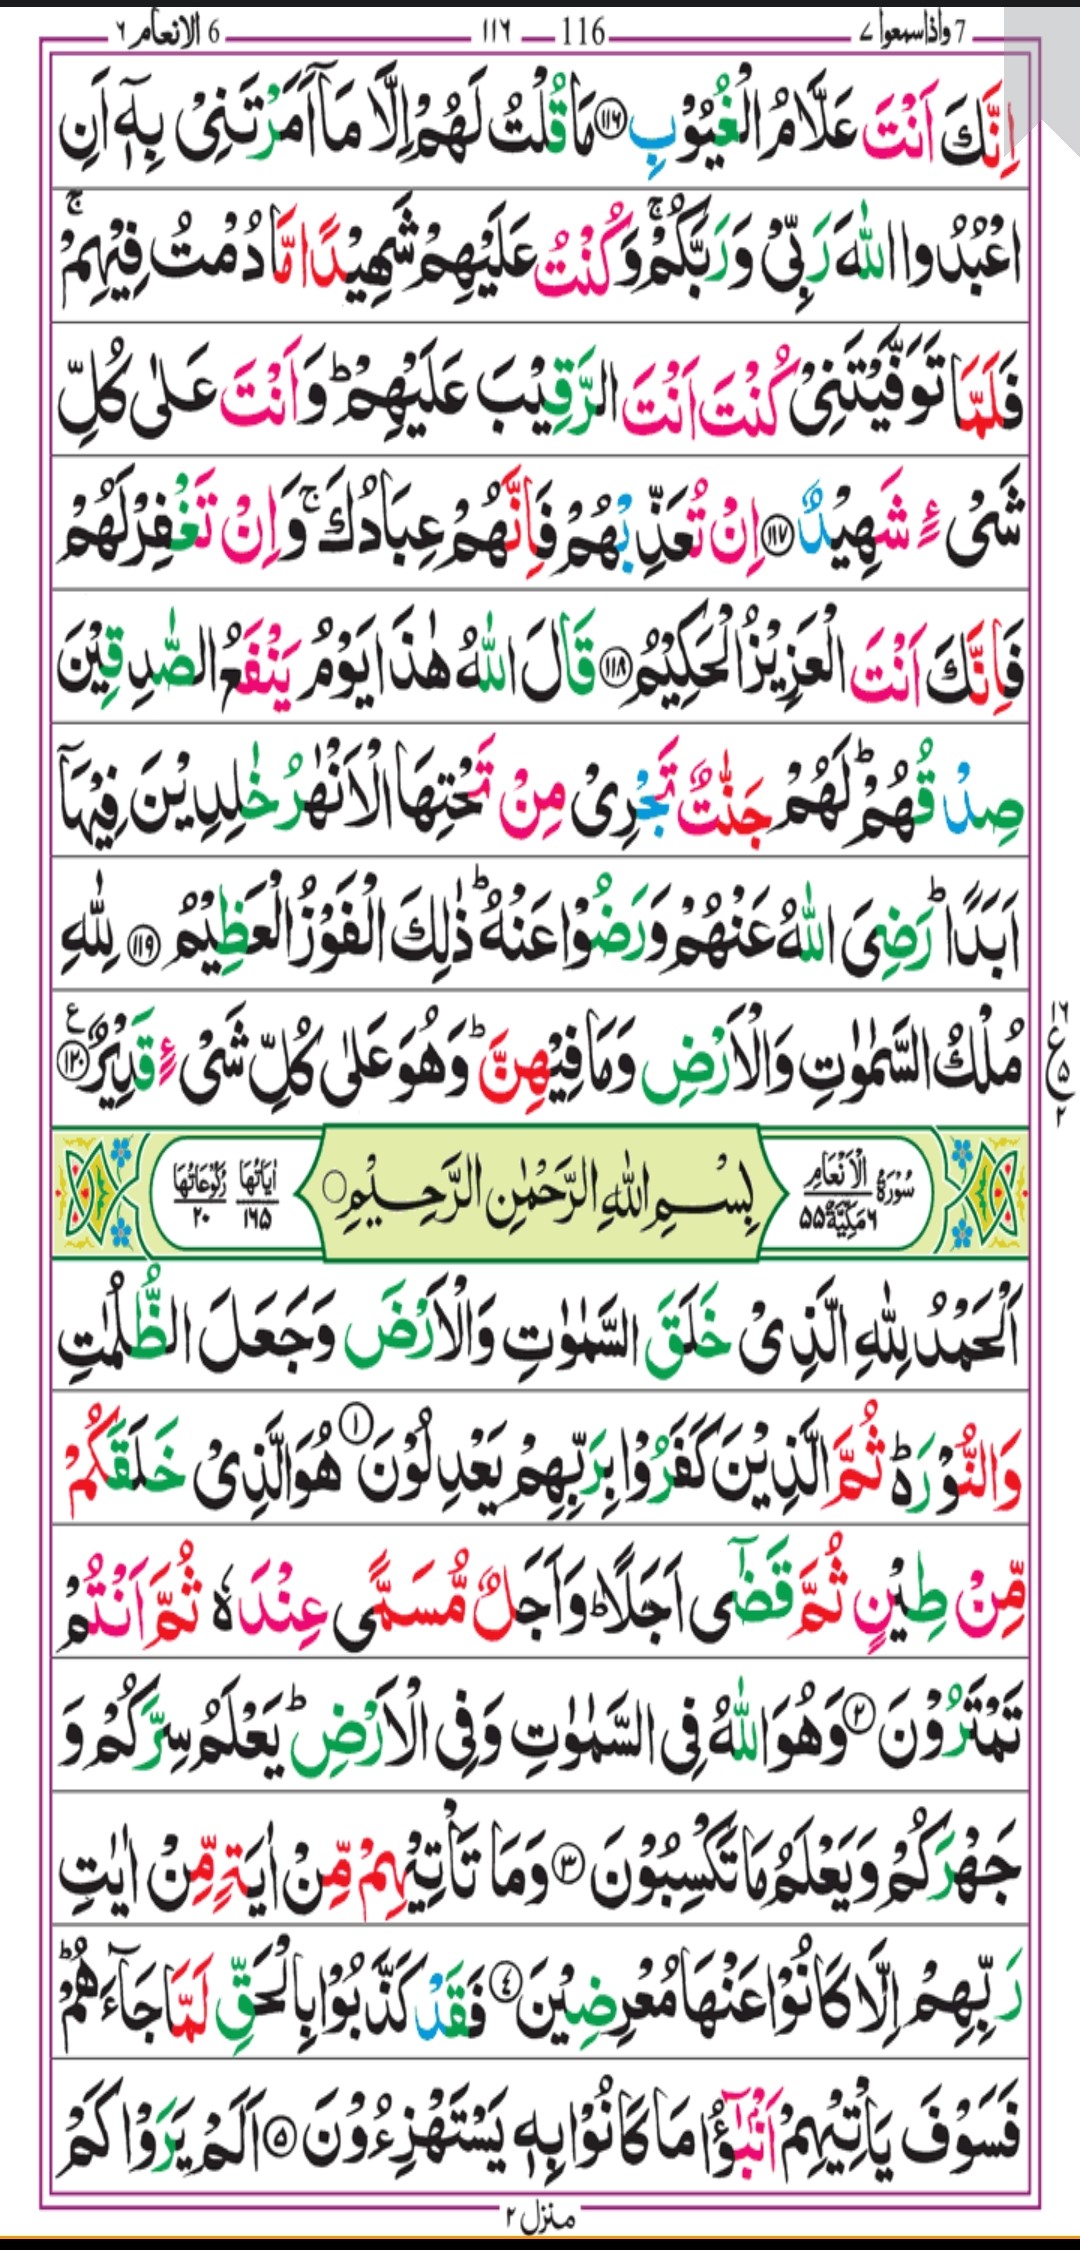 7 واذاسمعوا ٧ 116 ١١٦ 6 الانعام ٦
اِنَّكَ اَنْتَ عَلَّامُ الْغُيُوْبِ ﴿١١٦﴾ مَا قُلْتُ لَهُمْ اِلَّا مَاۤ اَمَرْتَنِىْ بِهٖۤ اَنِ
اعْبُدُوا اللّٰهَ رَبِّىْ وَرَبَّكُمْ ۚ وَكُنْتُ عَلَيْهِمْ شَهِيْدًا مَّا دُمْتُ فِيْهِمْ ۚ
فَلَمَّا تَوَفَّيْتَنِىْ كُنْتَ اَنْتَ الرَّقِيْبَ عَلَيْهِمْ ؕ وَاَنْتَ عَلٰى كُلِّ
شَىْءٍ شَهِيْدٌ ﴿١١٧﴾ اِنْ تُعَذِّبْهُمْ فَاِنَّهُمْ عِبَادُكَ ۚ وَاِنْ تَغْفِرْ لَهُمْ
فَاِنَّكَ اَنْتَ الْعَزِيْزُ الْحَكِيْمُ ﴿١١٨﴾ قَالَ اللّٰهُ هٰذَا يَوْمُ يَنْفَعُ الصّٰدِقِيْنَ
صِدْقُهُمْ ؕ لَهُمْ جَنّٰتٌ تَجْرِىْ مِنْ تَحْتِهَا الْاَنْهٰرُ خٰلِدِيْنَ فِيْهَاۤ
اَبَدًا ؕ رَضِىَ اللّٰهُ عَنْهُمْ وَرَضُوْا عَنْهُ ؕ ذٰلِكَ الْفَوْزُ الْعَظِيْمُ ﴿١١٩﴾ لِلّٰهِ
مُلْكُ السَّمٰوٰتِ وَالْاَرْضِ وَمَا فِيْهِنَّ ؕ وَهُوَ عَلٰى كُلِّ شَىْءٍ قَدِيْرٌ ﴿١٢٠﴾ ع
١٦ ع ٥ ٢
سُوْرَةُ الْاَنْعَامِ ٦ مَكِّيَّةٌ ٥٥ بِسْمِ اللّٰهِ الرَّحْمٰنِ الرَّحِيْمِ اٰيَاتُهَا ١٦٥ رُكُوْعَاتُهَا ٢٠
اَلْحَمْدُ لِلّٰهِ الَّذِىْ خَلَقَ السَّمٰوٰتِ وَالْاَرْضَ وَجَعَلَ الظُّلُمٰتِ
وَالنُّوْرَ ؕ ثُمَّ الَّذِيْنَ كَفَرُوْا بِرَبِّهِمْ يَعْدِلُوْنَ ﴿١﴾ هُوَ الَّذِىْ خَلَقَكُمْ
مِّنْ طِيْنٍ ثُمَّ قَضٰۤى اَجَلًا ؕ وَاَجَلٌ مُّسَمًّى عِنْدَهٗ ثُمَّ اَنْتُمْ
تَمْتَرُوْنَ ﴿٢﴾ وَهُوَ اللّٰهُ فِى السَّمٰوٰتِ وَفِى الْاَرْضِ ؕ يَعْلَمُ سِرَّكُمْ وَ
جَهْرَكُمْ وَيَعْلَمُ مَا تَكْسِبُوْنَ ﴿٣﴾ وَمَا تَاْتِيْهِمْ مِّنْ اٰيَةٍ مِّنْ اٰيٰتِ
رَبِّهِمْ اِلَّا كَانُوْا عَنْهَا مُعْرِضِيْنَ ﴿٤﴾ فَقَدْ كَذَّبُوْا بِالْحَقِّ لَمَّا جَآءَهُمْ ؕ
فَسَوْفَ يَاْتِيْهِمْ اَنْۢبٰٓؤُا مَا كَانُوْا بِهٖ يَسْتَهْزِءُوْنَ ﴿٥﴾ اَلَمْ يَرَوْا كَمْ
منزل ٢